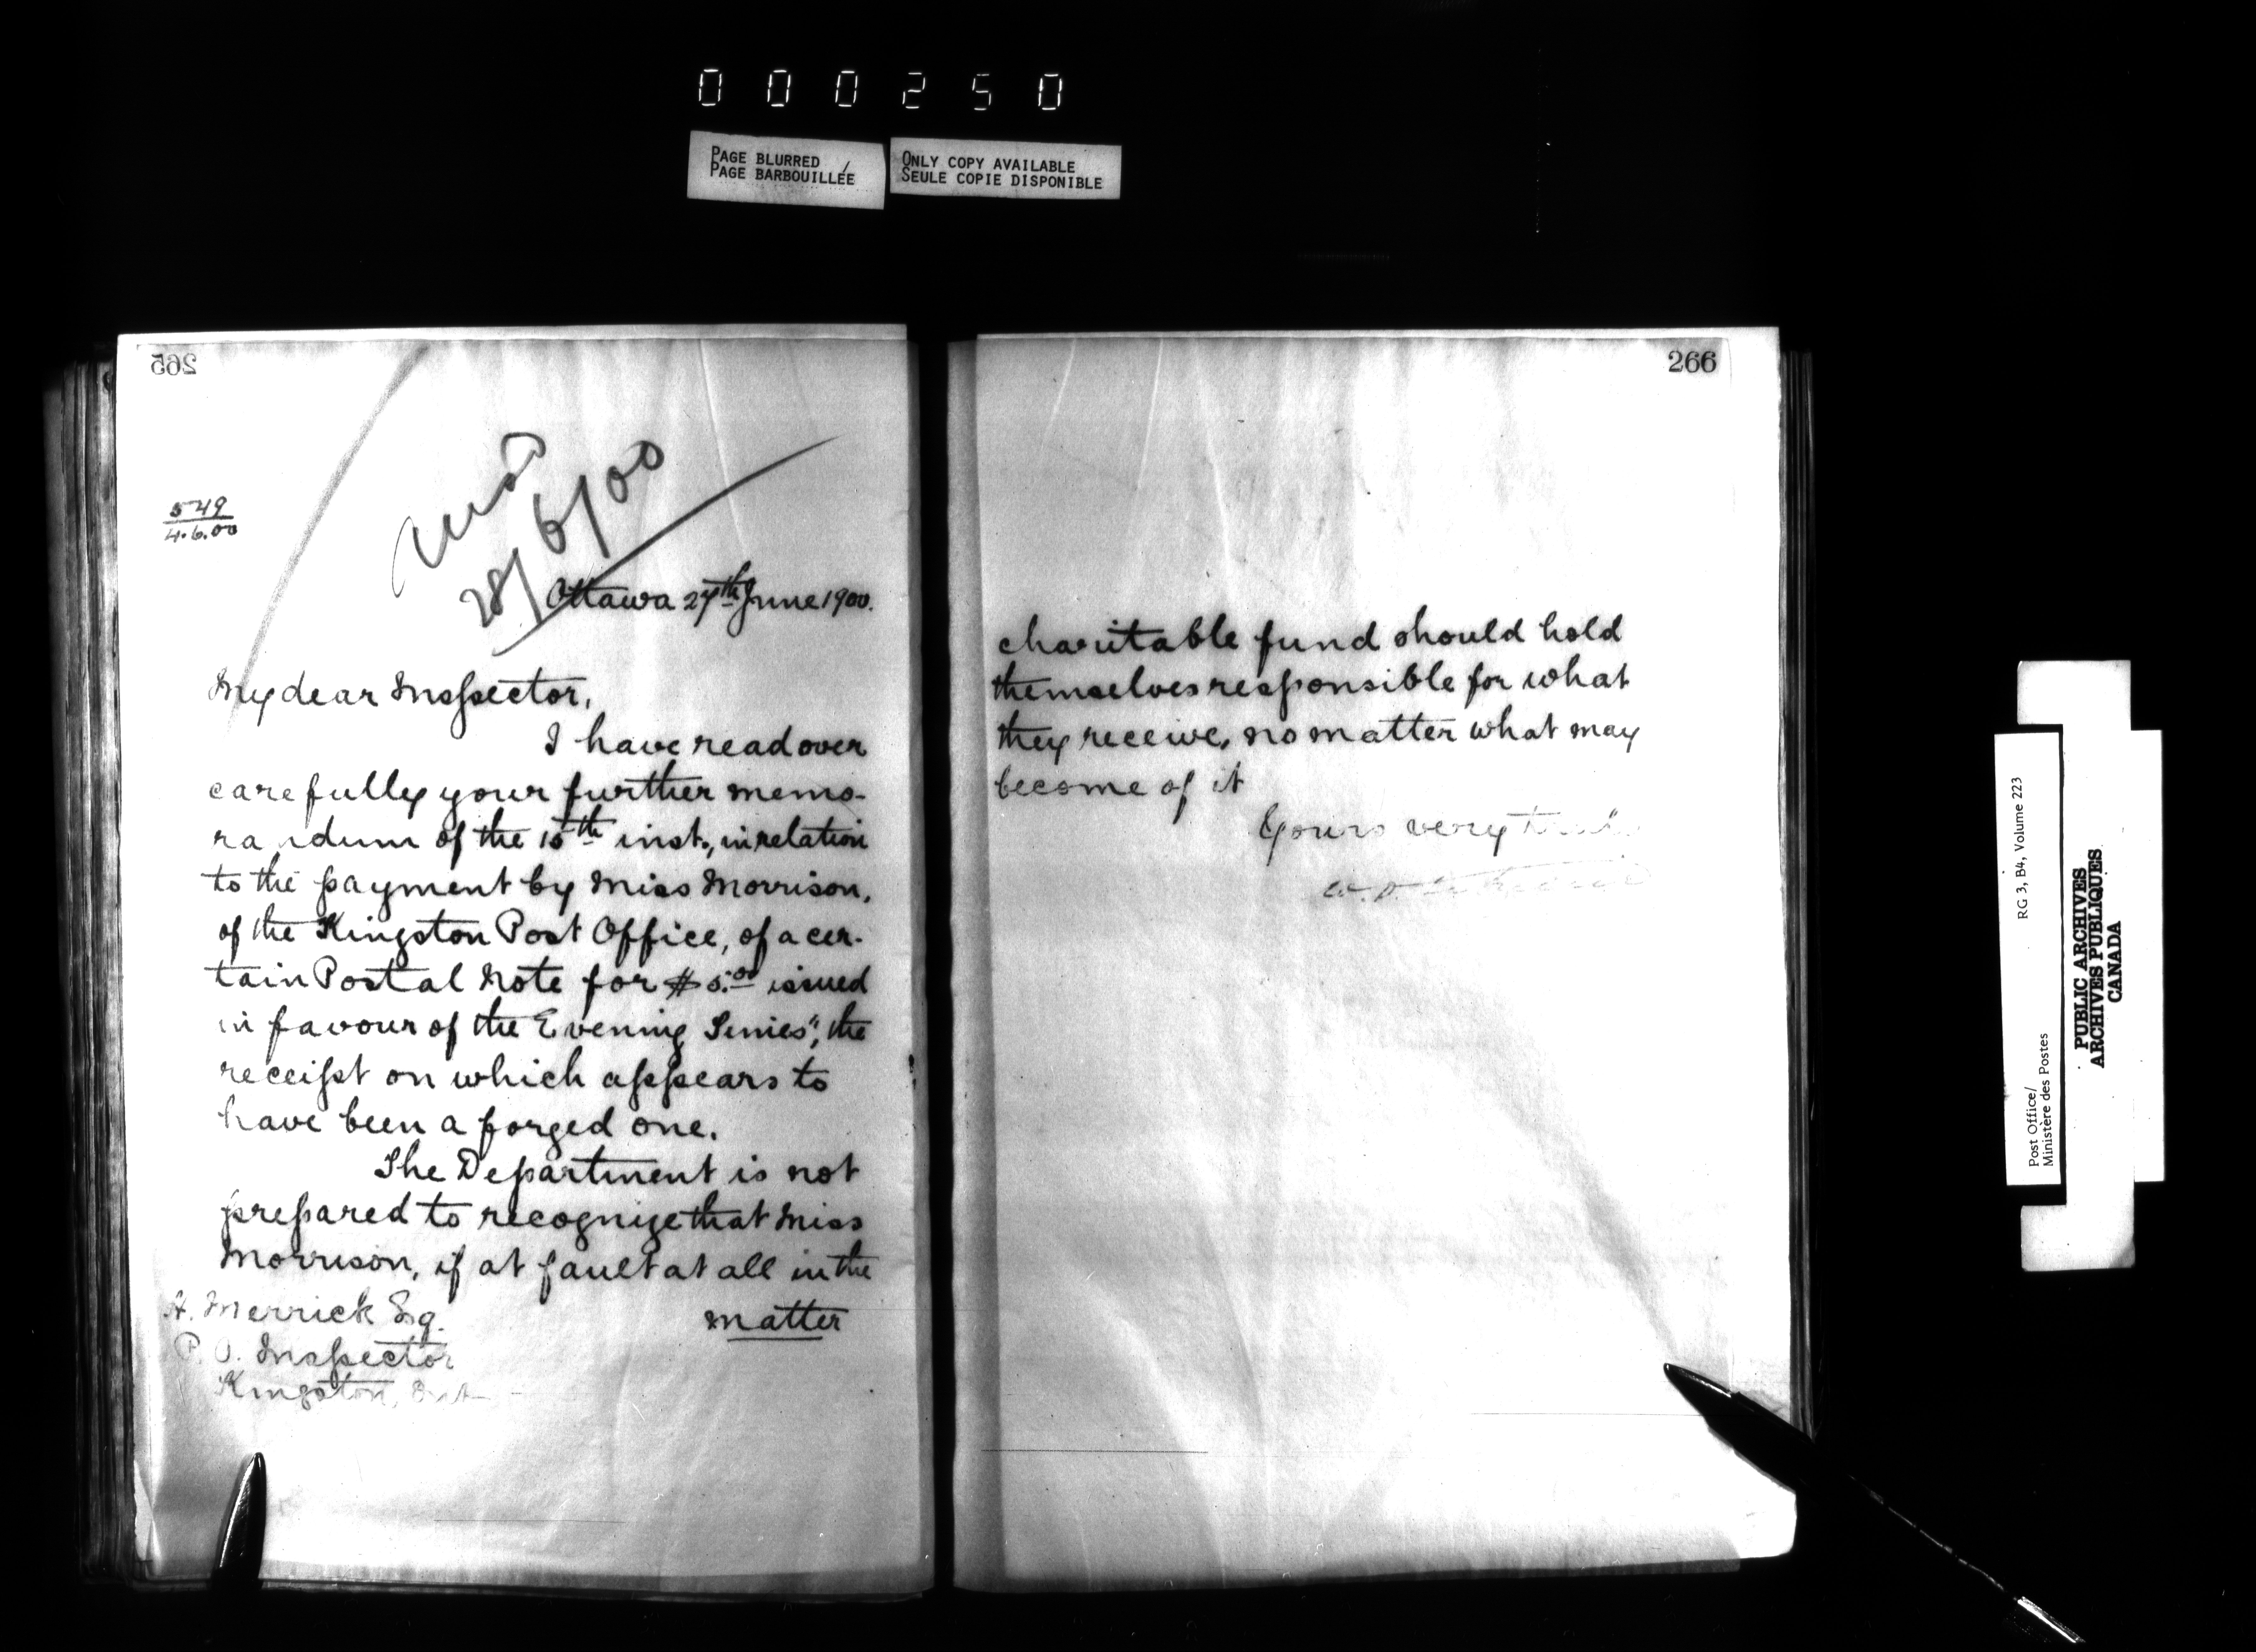 000250
PAGE BLURRED
PAGE BARBOUILLÉE
ONLY COPY AVAILABLE
SEULE COPIE DISPONIBLE
265
549
4.6.00
28/6/00
Ottawa 27th June 1900.
My dear Inspector,
I have read over
carefully your further memo-
randum of the 15th inst., in relation
to the payment by Miss Morrison,
of the Kingston Post Office, of a cer-
tain Postal Note for $5.00 issued
in favour of the Evening Times", the
receipt on which appears to
have been a forged one.
The Department is not
prepared to recognize that Miss
Morrison, if at fault at all in the
matter
H. Merrick Esq.
P. O. Inspector
Kingston, Ont
266
charitable fund should hold
themselves responsible for what
they receive, no matter what may
become of it
Yours very truly
Post Office/
Ministère des Postes
RG 3, B4, Volume 223
PUBLIC ARCHIVES
ARCHIVES PUBLIQUES
CANADA